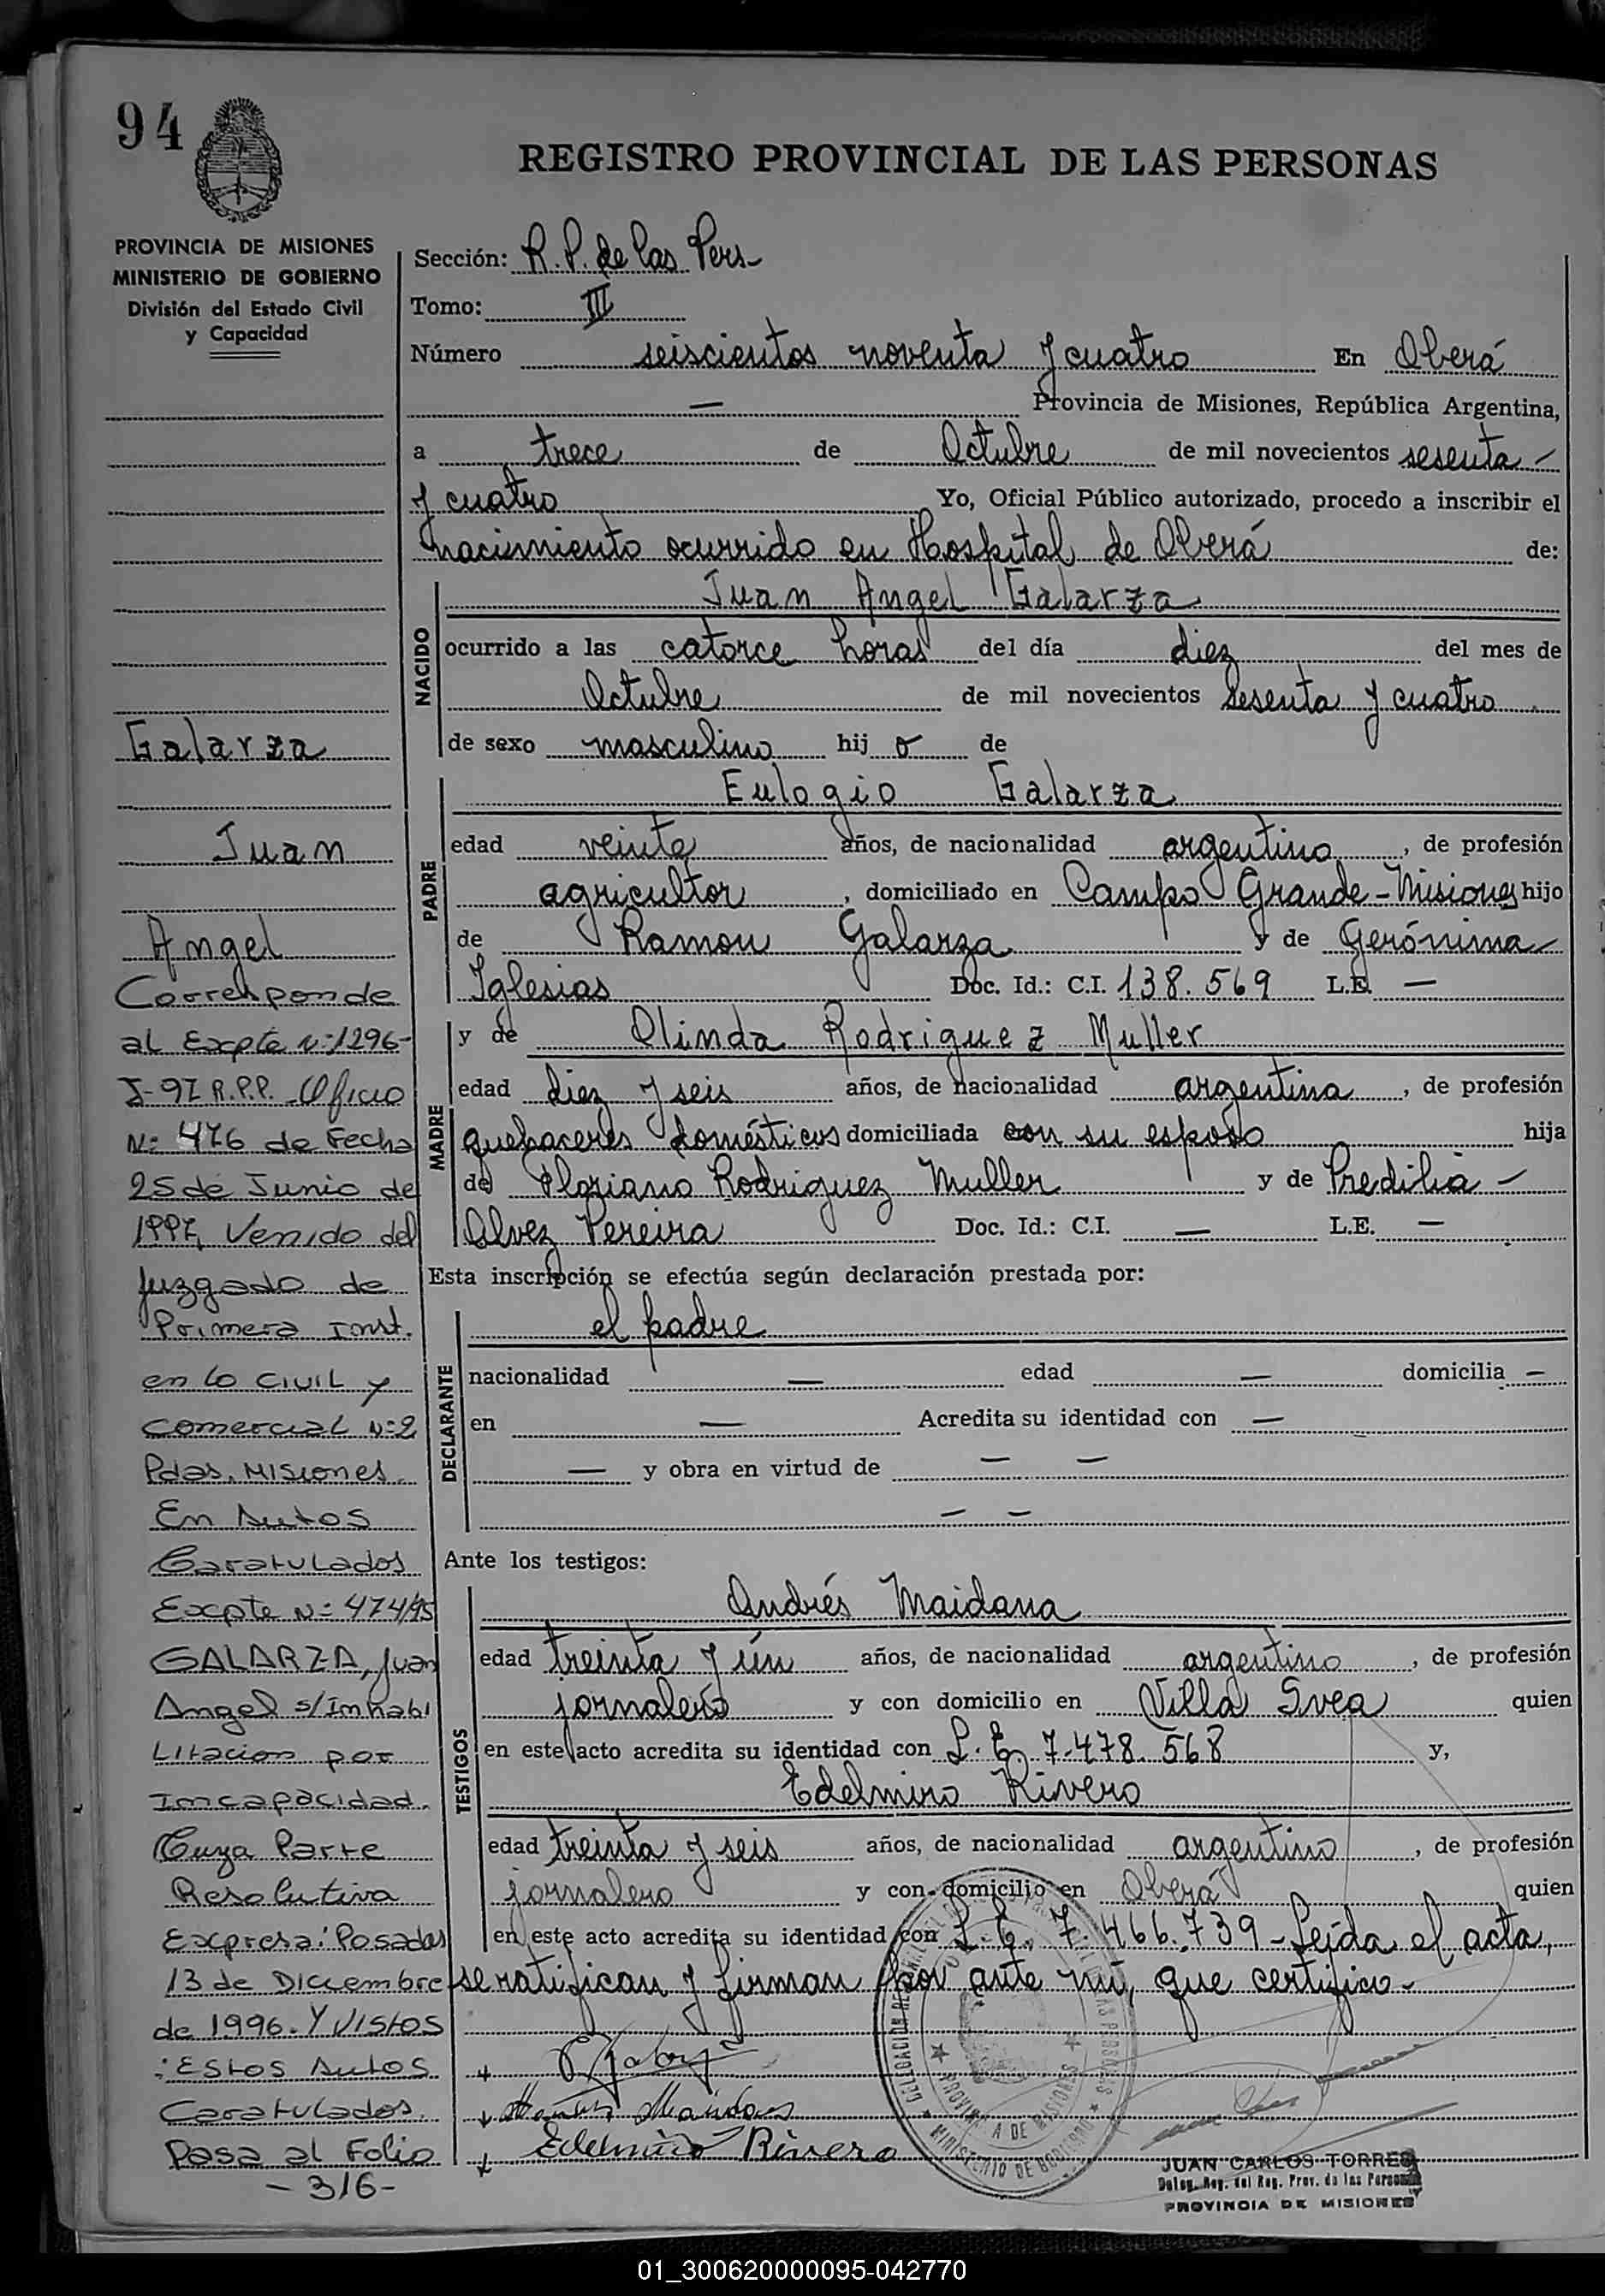 94
REGISTRO PROVINCIAL DE LAS PERSONAS
PROVINCIA DE MISIONES
MINISTERIO DE GOBIERNO
División del Estado Civil
y Capacidad
Galarza
Juan
Angel
Corresponde
al Expte N:1296-
J-97 R.P.P. Oficio
N: 476 de Fecha
25 de Junio de
1997, Venido del
Juzgado de
Primera Inst.
en lo CIVIL y
Comercial N:2
Pdas. Misiones
En Autos
Caratulados
Expte N: 474/95
GALARZA, Juan
Angel s/Inhabi
Litacion por
Imcapacidad.
Cuya Parte
Resolutiva
Expresa: Posadas
13 de Diciembre
de 1996. Y Vistos
: Estos Autos
Caratulados.
Pasa al Folio
- 316 -
Sección: R.P. de las Pers-
Tomo: III
Número seiscientos noventa y cuatro En Oberá
— Provincia de Misiones, República Argentina,
a trece de Octubre de mil novecientos sesenta -
y cuatro Yo, Oficial Público autorizado, procedo a inscribir el
nacimiento ocurrido en Hospital de Oberá de:
NACIDO
Juan Angel Galarza
ocurrido a las catorce horas del día diez del mes de
Octubre de mil novecientos sesenta y cuatro
de sexo masculino hij o de
PADRE
Eulogio Galarza
edad veinte años, de nacionalidad argentino, de profesión
agricultor, domiciliado en Campo Grande - Misiones hijo
de Ramon Galarza y de Gerónima
Iglesias Doc. Id.: C.I. 138.569 L.E. —
MADRE
y de Olinda Rodriguez Muller
edad diez y seis años, de nacionalidad argentina, de profesión
quehaceres domésticos domiciliada con su esposo hija
de Floriano Rodriguez Muller y de Predilia -
Alvez Pereira Doc. Id.: C.I. — L.E. —
Esta inscripción se efectúa según declaración prestada por:
DECLARANTE
el padre
nacionalidad — edad — domicilia —
en — Acredita su identidad con —
— y obra en virtud de — —
— —
Ante los testigos:
TESTIGOS
Andrés Maidana
edad treinta y ún años, de nacionalidad argentino, de profesión
jornalero y con domicilio en Villa Svea quien
en este acto acredita su identidad con L.E. 7.478.568 y,
Edelmiro Rivero
edad treinta y seis años, de nacionalidad argentino, de profesión
jornalero y con domicilio en Oberá quien
en este acto acredita su identidad con L.E. 7.466.739 - Leída el acta,
se ratifican y firman por ante mí, que certifico -
Maidana
Edelmiro Rivero
PROVINCIA DE MISIONES
MINISTERIO DE GOBIERNO
JUAN CARLOS TORRES
Deleg. Reg. del Reg. Prov. de las Personas
PROVINCIA DE MISIONES
01_300620000095-042770